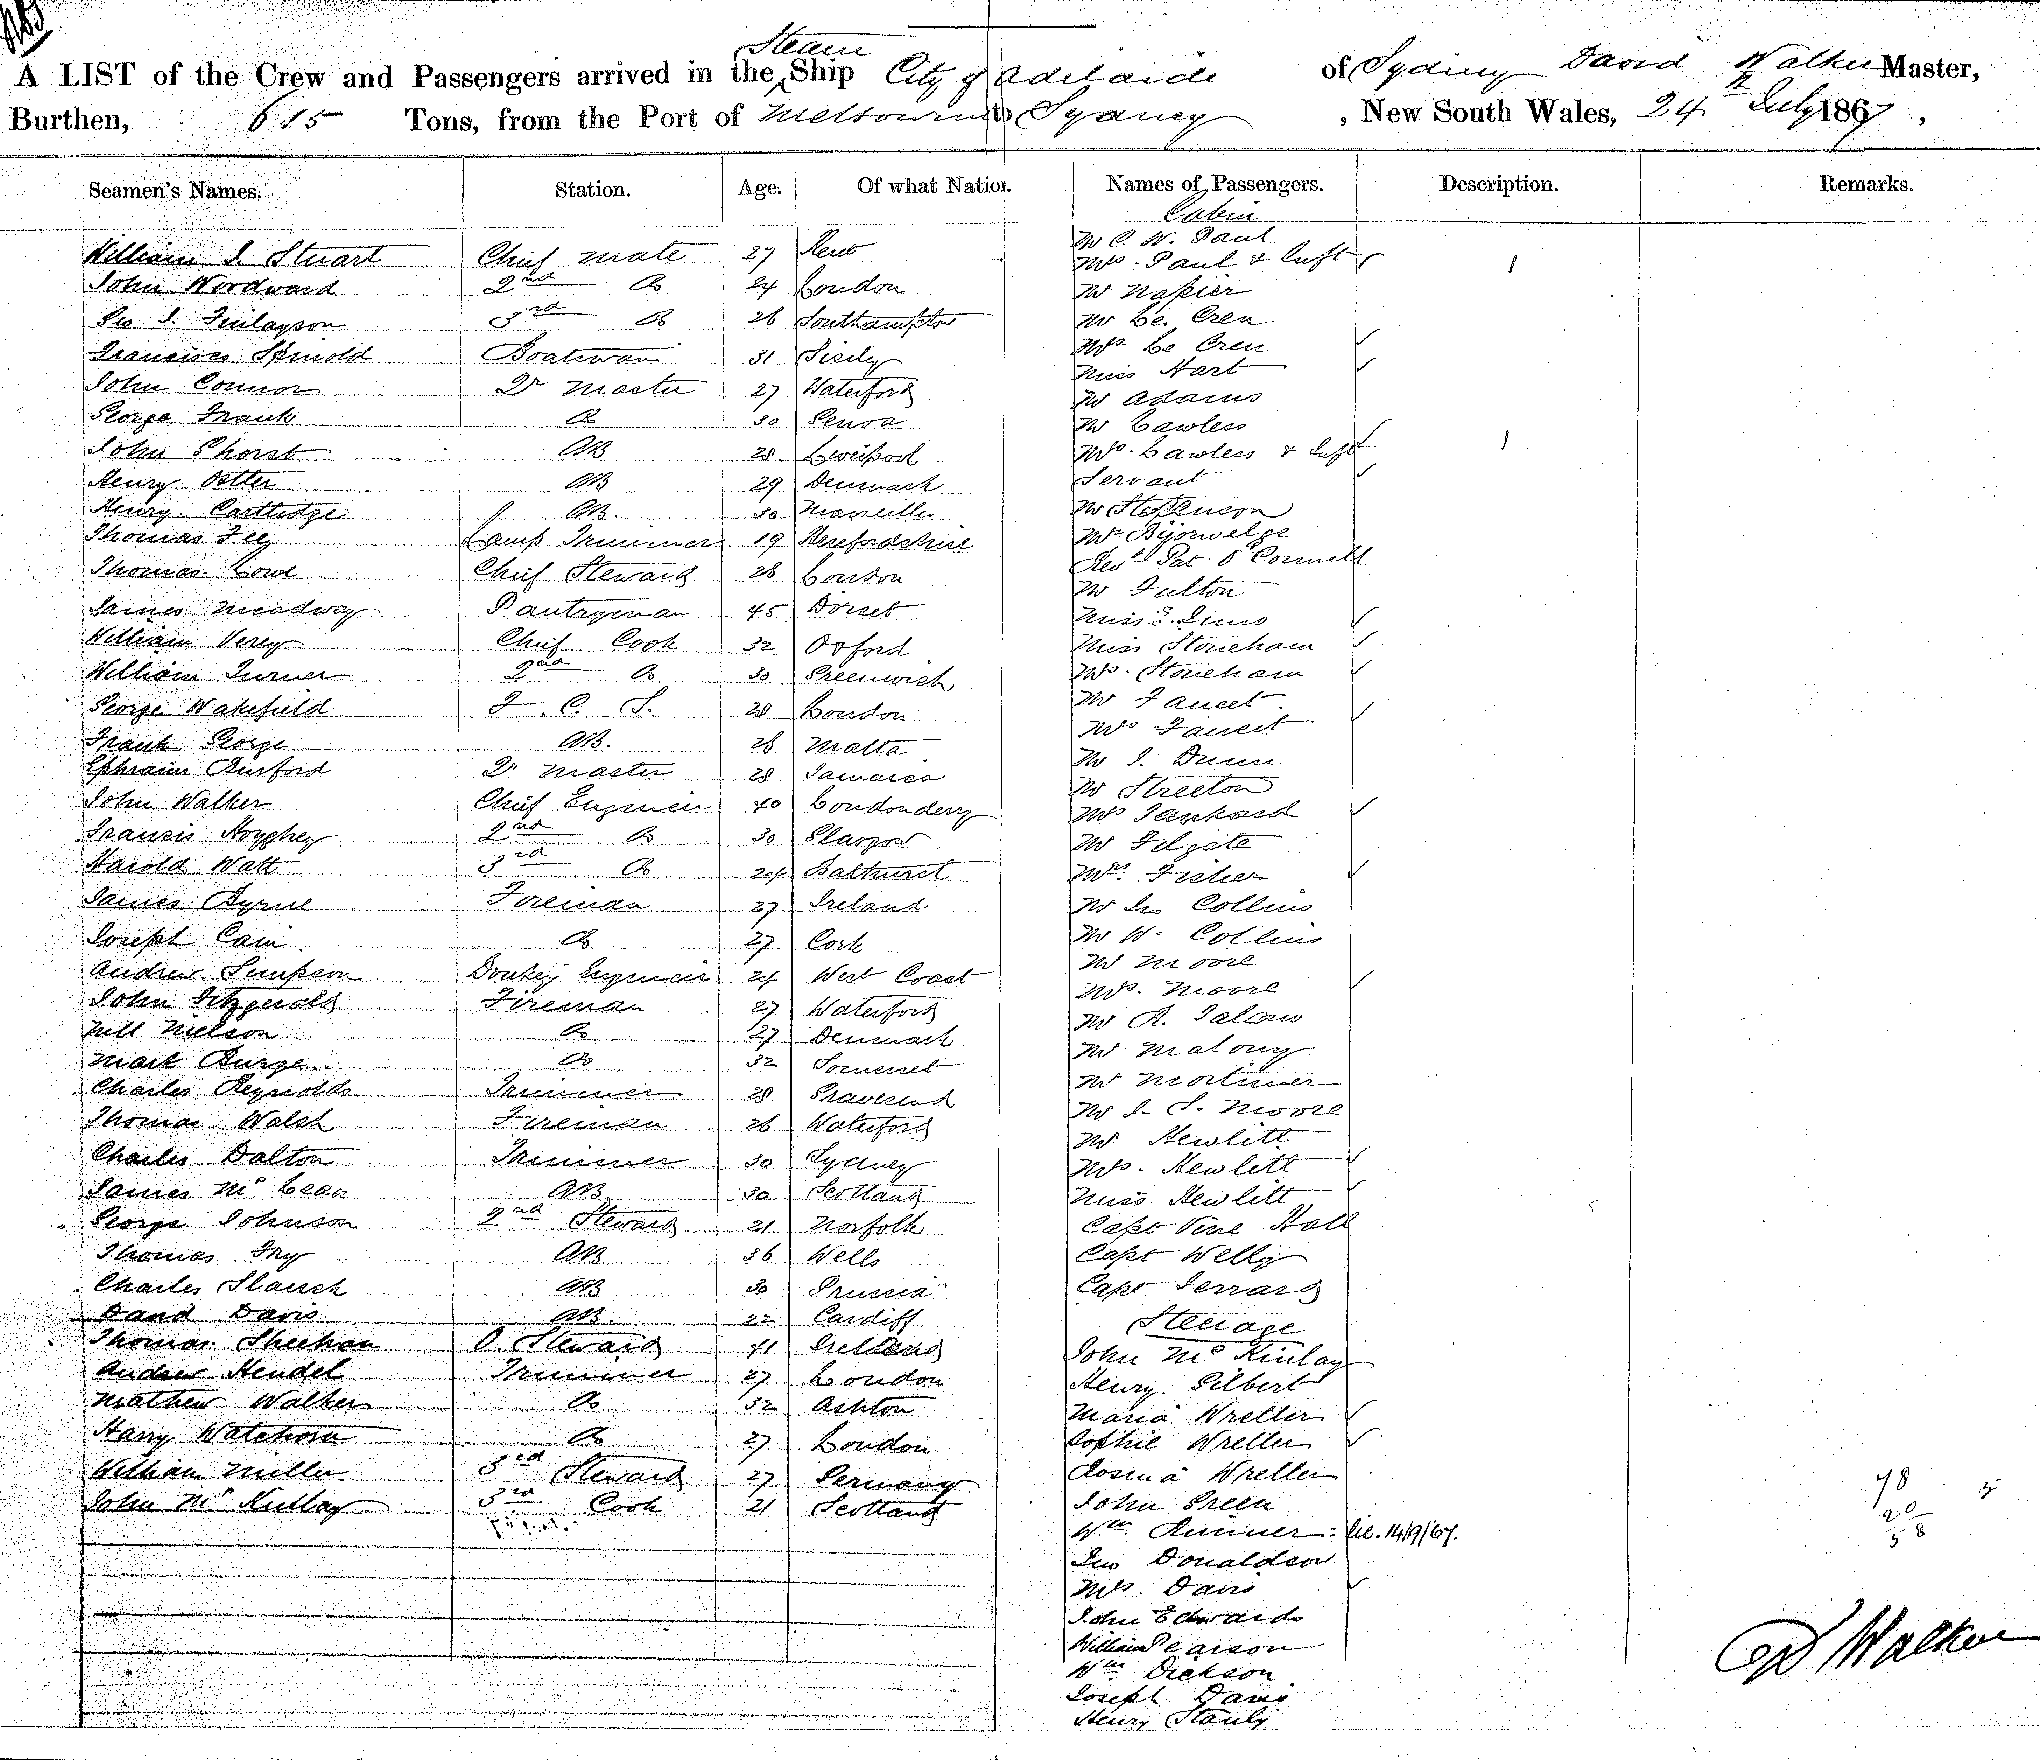 A LIST of the Crew and Passengers arrived in the Steam Ship City of Adelaide of Sydney David Walker Master,
Burthen, 615 Tons, from the Port of Melbourne to Sydney, New South Wales, 24th July 1867,
Seamen's Names. Station. Age. Of what Nation. Names of Passengers. Description. Remarks.
William J. Stuart Chief Mate 27 Kent
John Woodward 2nd Do 24 London
Geo J. Finlayson 3rd Do 26 Southampton
Francisco Boatswain 31 Sicily
John Connor Qr Master 27 Waterford
George Frank Do 30 Genoa
John AB 28 Liverpool
Henry Potter AB 29 Denmark
Henry Carttedge AB. 30 Marseilles
Thomas Fee Lamp Trimmer 19 Herefordshire
Thomas Lowe Chief Steward 28 London
James Meadway Pantryman 45 Dorset
William Verey Chief Cook 32 Oxford
William Turner 2nd Do 30 Greenwich
George Wakefield F. C. S. 28 London
Frank George AB. 26 Malta
Ephraim Burford Qr Master 28 Jamaica
John Walker Chief Engineer 40 Londonderry
Francis 2nd Do 30 Glasgow
Harold Watt 3rd Do 24 Bathurst
James Byrne Fireman 27 Ireland
Joseph Cain Do 27 Cork
Andrew Simpson Donkey Engineer 24 West Coast
John Fitzgerald Fireman 27 Waterford
Nill Nielson Do 27 Denmark
Mark Burge Do 32 Somerset
Charles Reynolds Trimmer 28 Gravesend
Thomas Walsh Fireman 26 Waterford
Charles Dalton Trimmer 30 Sydney
James Mc Lean AB 30 Scotland
George Johnson 2nd Steward 21 Norfolk
Thomas Fry AB 36 Wells
Charles AB 30 Prussia
David Davis AB. 22 Cardiff
Thomas Sheehan Steward 41 Ireland
Andrew Hendel Trimmer 27 London
Mathew Walker Do 32 Ashton
Harry Watchorn Do 27 London
William Miller 3rd Steward 27 Germany
John Mc 3rd Cook 21 Scotland
Cabin
Mr C. W. Paul
Mrs. Paul & Inft 1
Mr Napier
Mr Le Cren
Mrs Le Cren
Miss Hart
Mr Adams
Mr Lawless
Mrs. Lawless & Inft 1
Servant
Mr Stephenson
Mr
Revd Pat. O'Connell
Mr Fulton
Miss
Miss Stoneham
Mrs. Stoneham
Mr Faucet
Mrs Faucet
Mr J. Dunn
Mr Streeton
Mrs Tankard
Mr Filgate
Mrs. Fisher
Mr Jn Collins
Mr W. Collins
Mr Moore
Mrs. Moore
Mr R.
Mr Malony
Mr Mortimer
Mr J. S. Moore
Mr Hewlitt
Mrs. Hewlitt
Miss Hewlitt
Capt Vine Hall
Capt Welby
Capt
Steerage
John Mc Kinlay
Henry Gilbert
Maria Wreller
Sophie Wreller
Rosina Wreller
John Green
Wm Rimmer: lic. 14/9/67.
Jno Donaldson
Mrs. Davis
John Edwards
William Pearson
Wm Dickson
Joseph Davis
Henry Stanly
78 5
20
58
D Walker